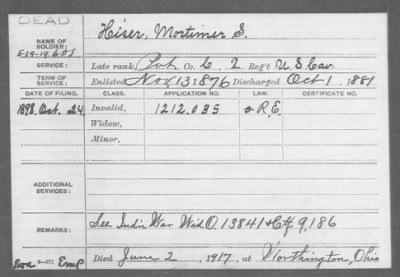 DEAD
NAME OF SOLDIER: Hiser, Mortimer S.
SERVICE: Late rank, Pvt Co. L, 2 Reg't U S Cav.
TERM OF SERVICE: Enlisted Nov 13 1876 Discharged Oct 1, 1881
DATE OF FILING. CLASS. APPLICATION NO. LAW. CERTIFICATE NO.
1898. Oct. 24. Invalid, 1212.035 R.E.
Widow,
Minor,
ADDITIONAL SERVICES:
REMARKS: See Indian War Wid O. 13841 & Ctf 9,186
Died June 2, 1917, at Worthington, Ohio